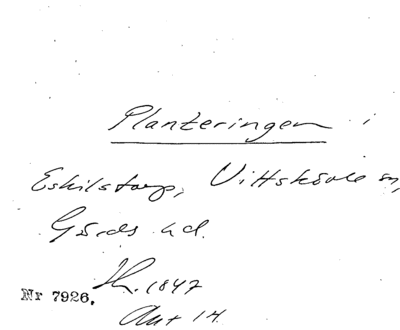 Planteringen i
Eskilstorp, Vittskövle sn,
Gärds hd.
Nr 7926.
1847
Ant 14.